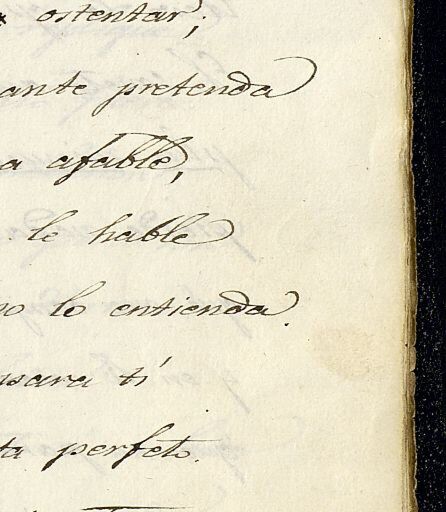 ostentar;
ante pretenda
a afable,
le hable
o lo entienda.
sara ti
ta perfeto.